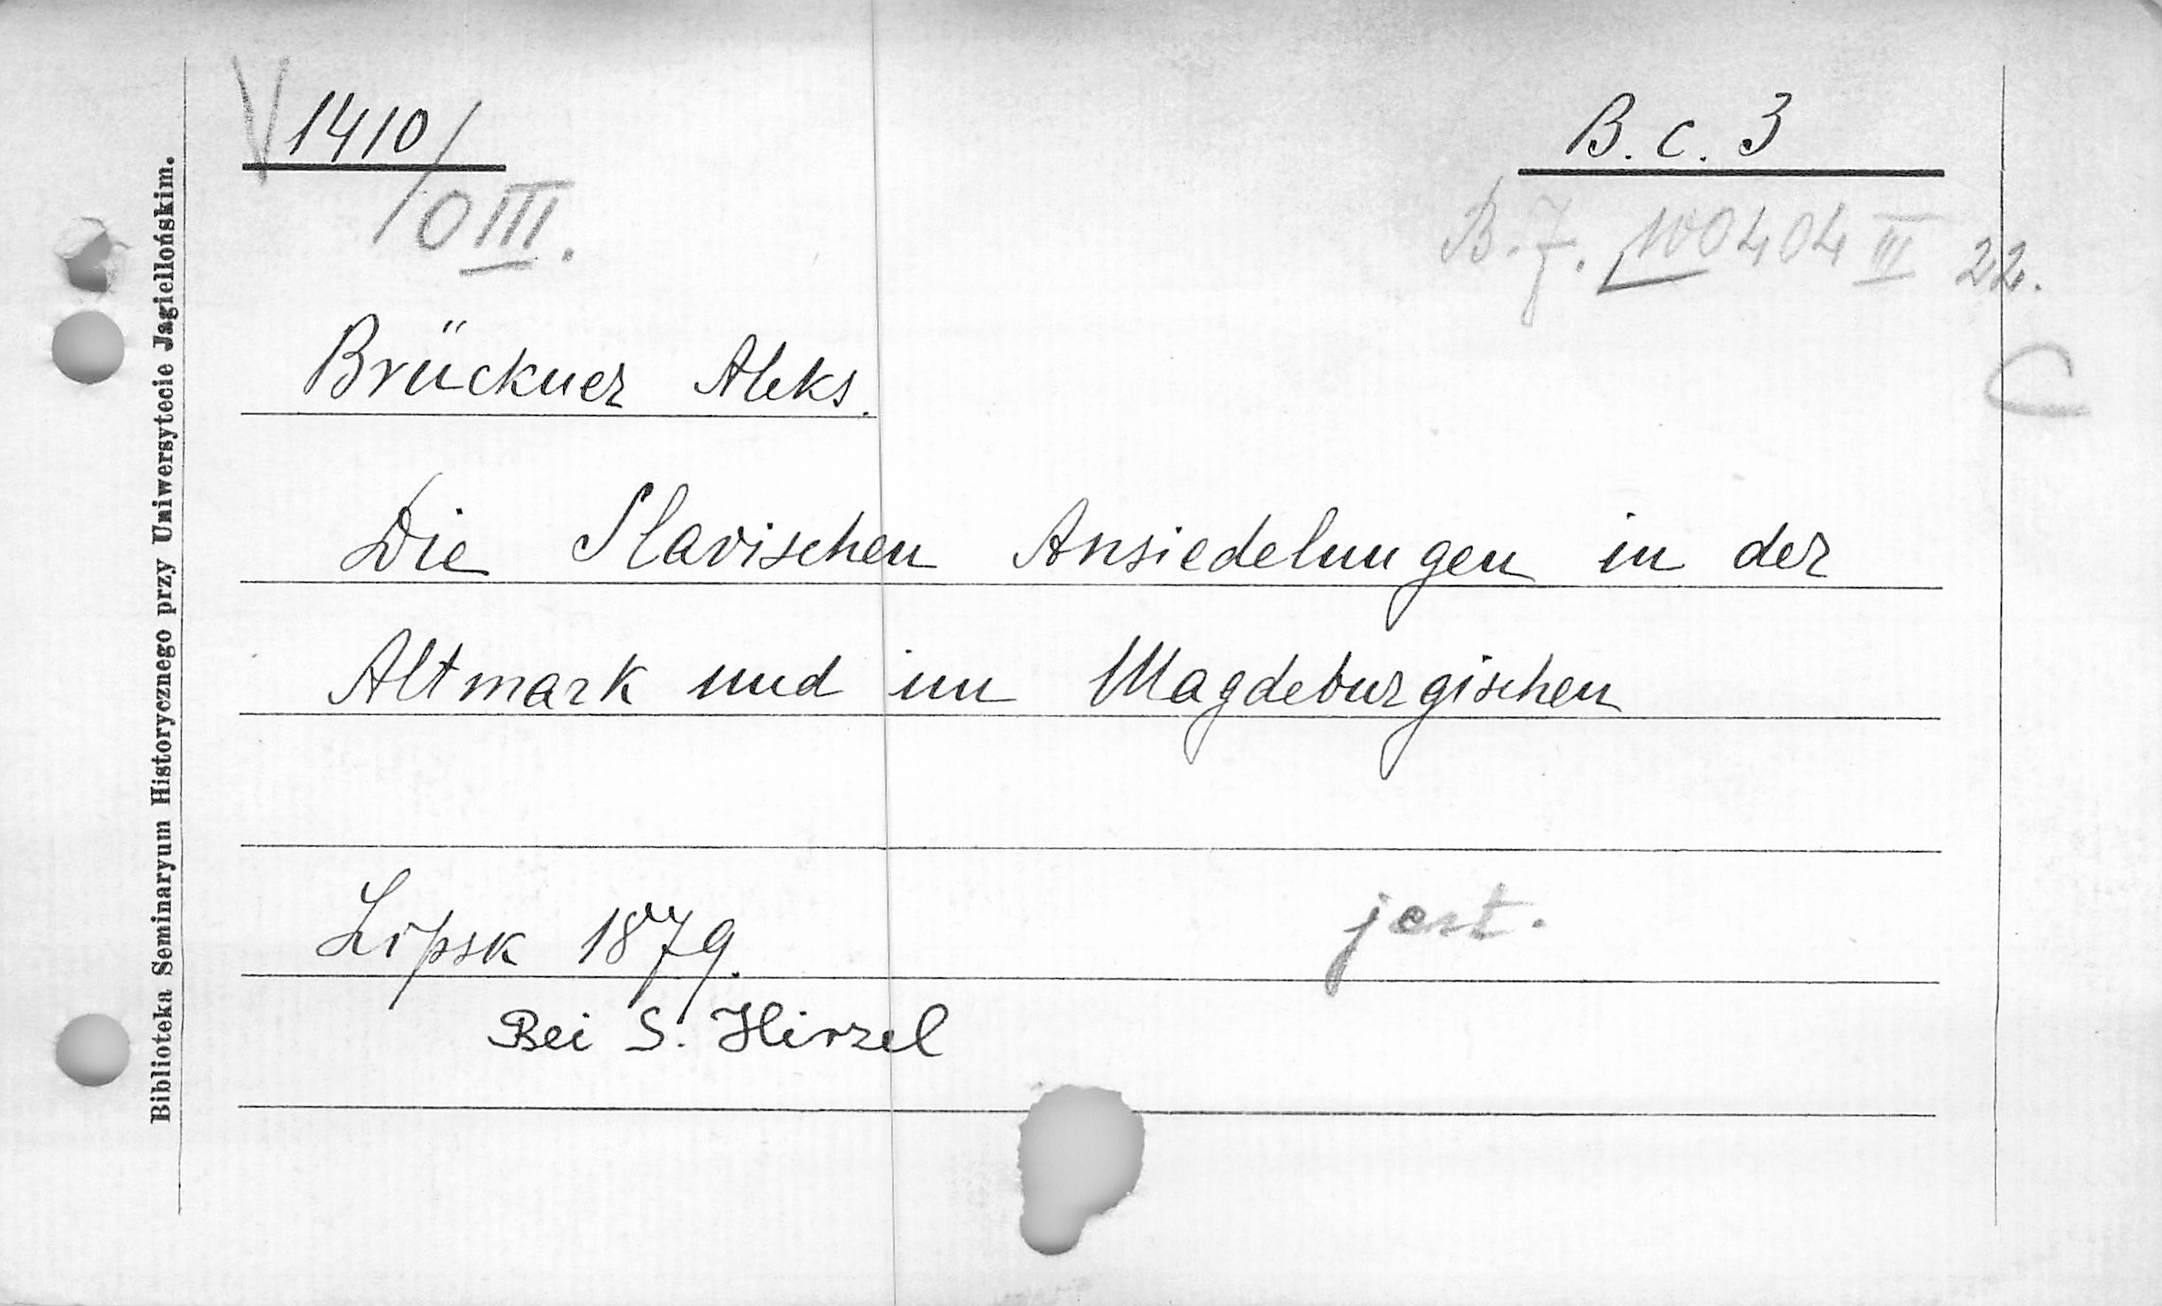 V 1410/
B. c. 3
O III.
B.J. 100404 III 22.
C
Brückner Aleks.
Die Slavischen Ansiedelungen in der
Altmark und im Magdeburgischen
Lipsk 1879.
jest.
Bei S. Hirzel
Biblioteka Seminaryum Historycznego przy Uniwersytecie Jagiellońskim.